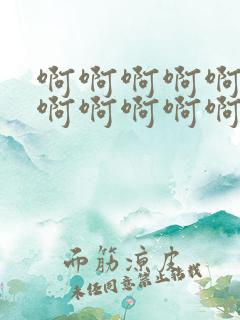 啊啊啊啊啊
啊啊啊啊啊
面筋凉皮
未经同意禁止转载